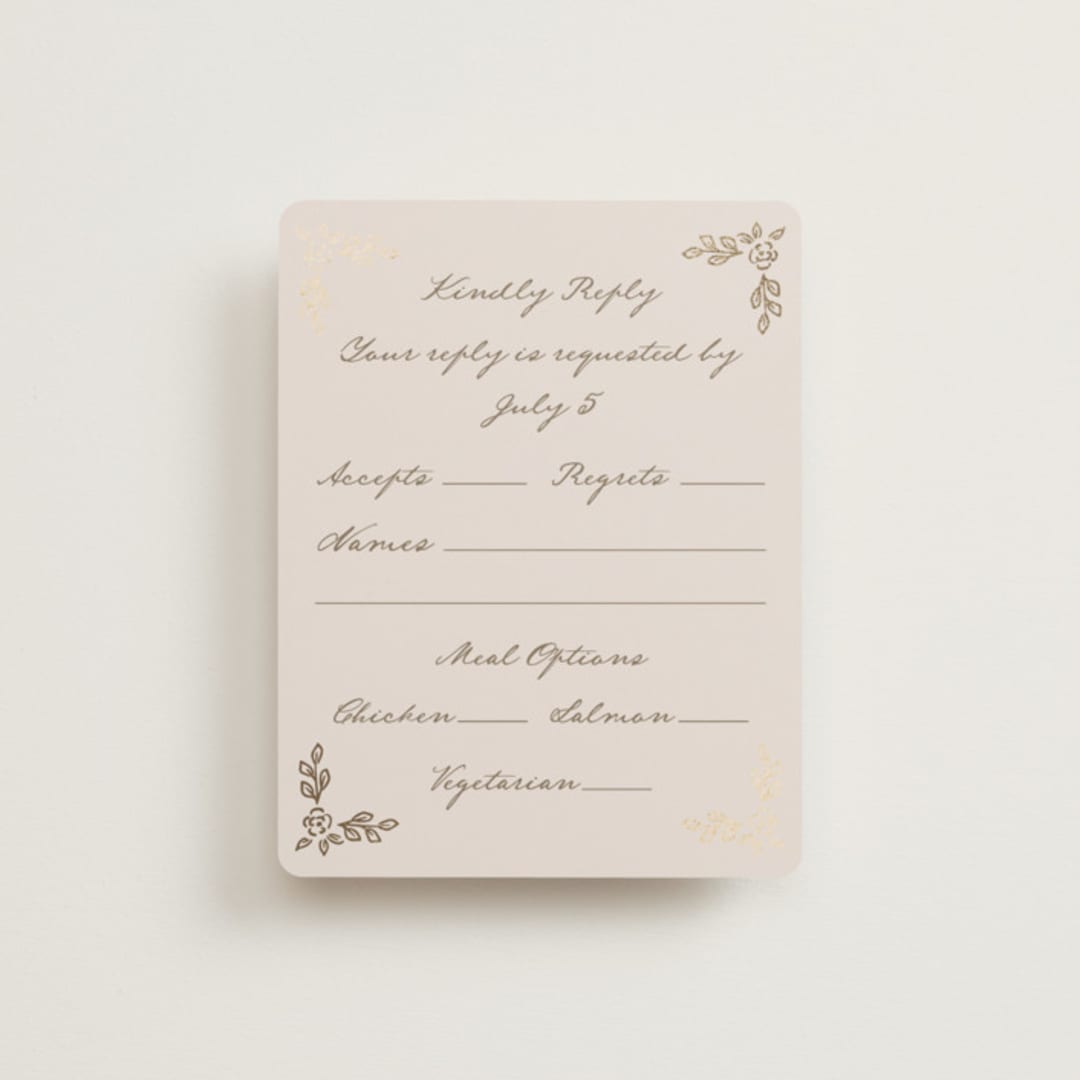 Kindly Reply
Your reply is requested by
July 5
Accepts ______ Regrets ______
Names ______________________
______________________________
Meal Options
Chicken_____ Salmon_____
Vegetarian_____